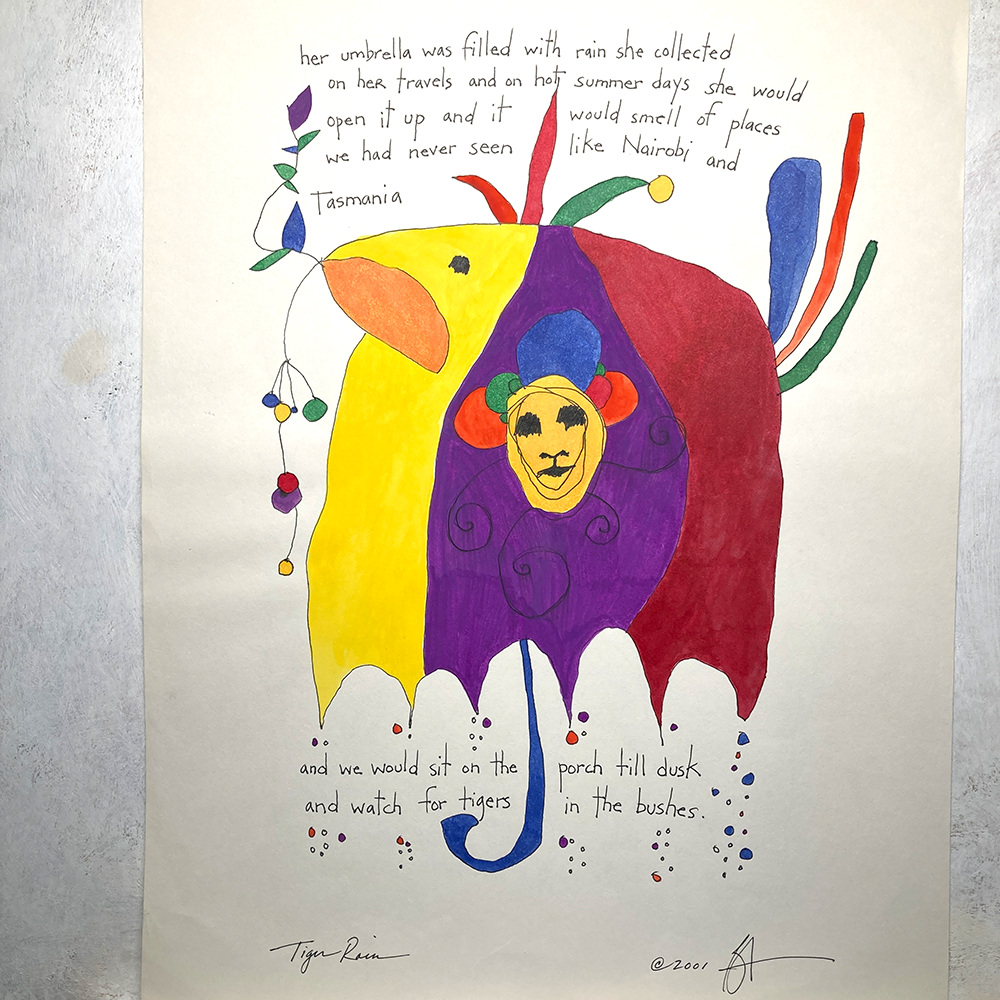 her umbrella was filled with rain she collected
on her travels and on hot summer days she would
open it up and it would smell of places
we had never seen like Nairobi and
Tasmania
and we would sit on the porch till dusk
and watch for tigers in the bushes.
Tiger Rain
©2001